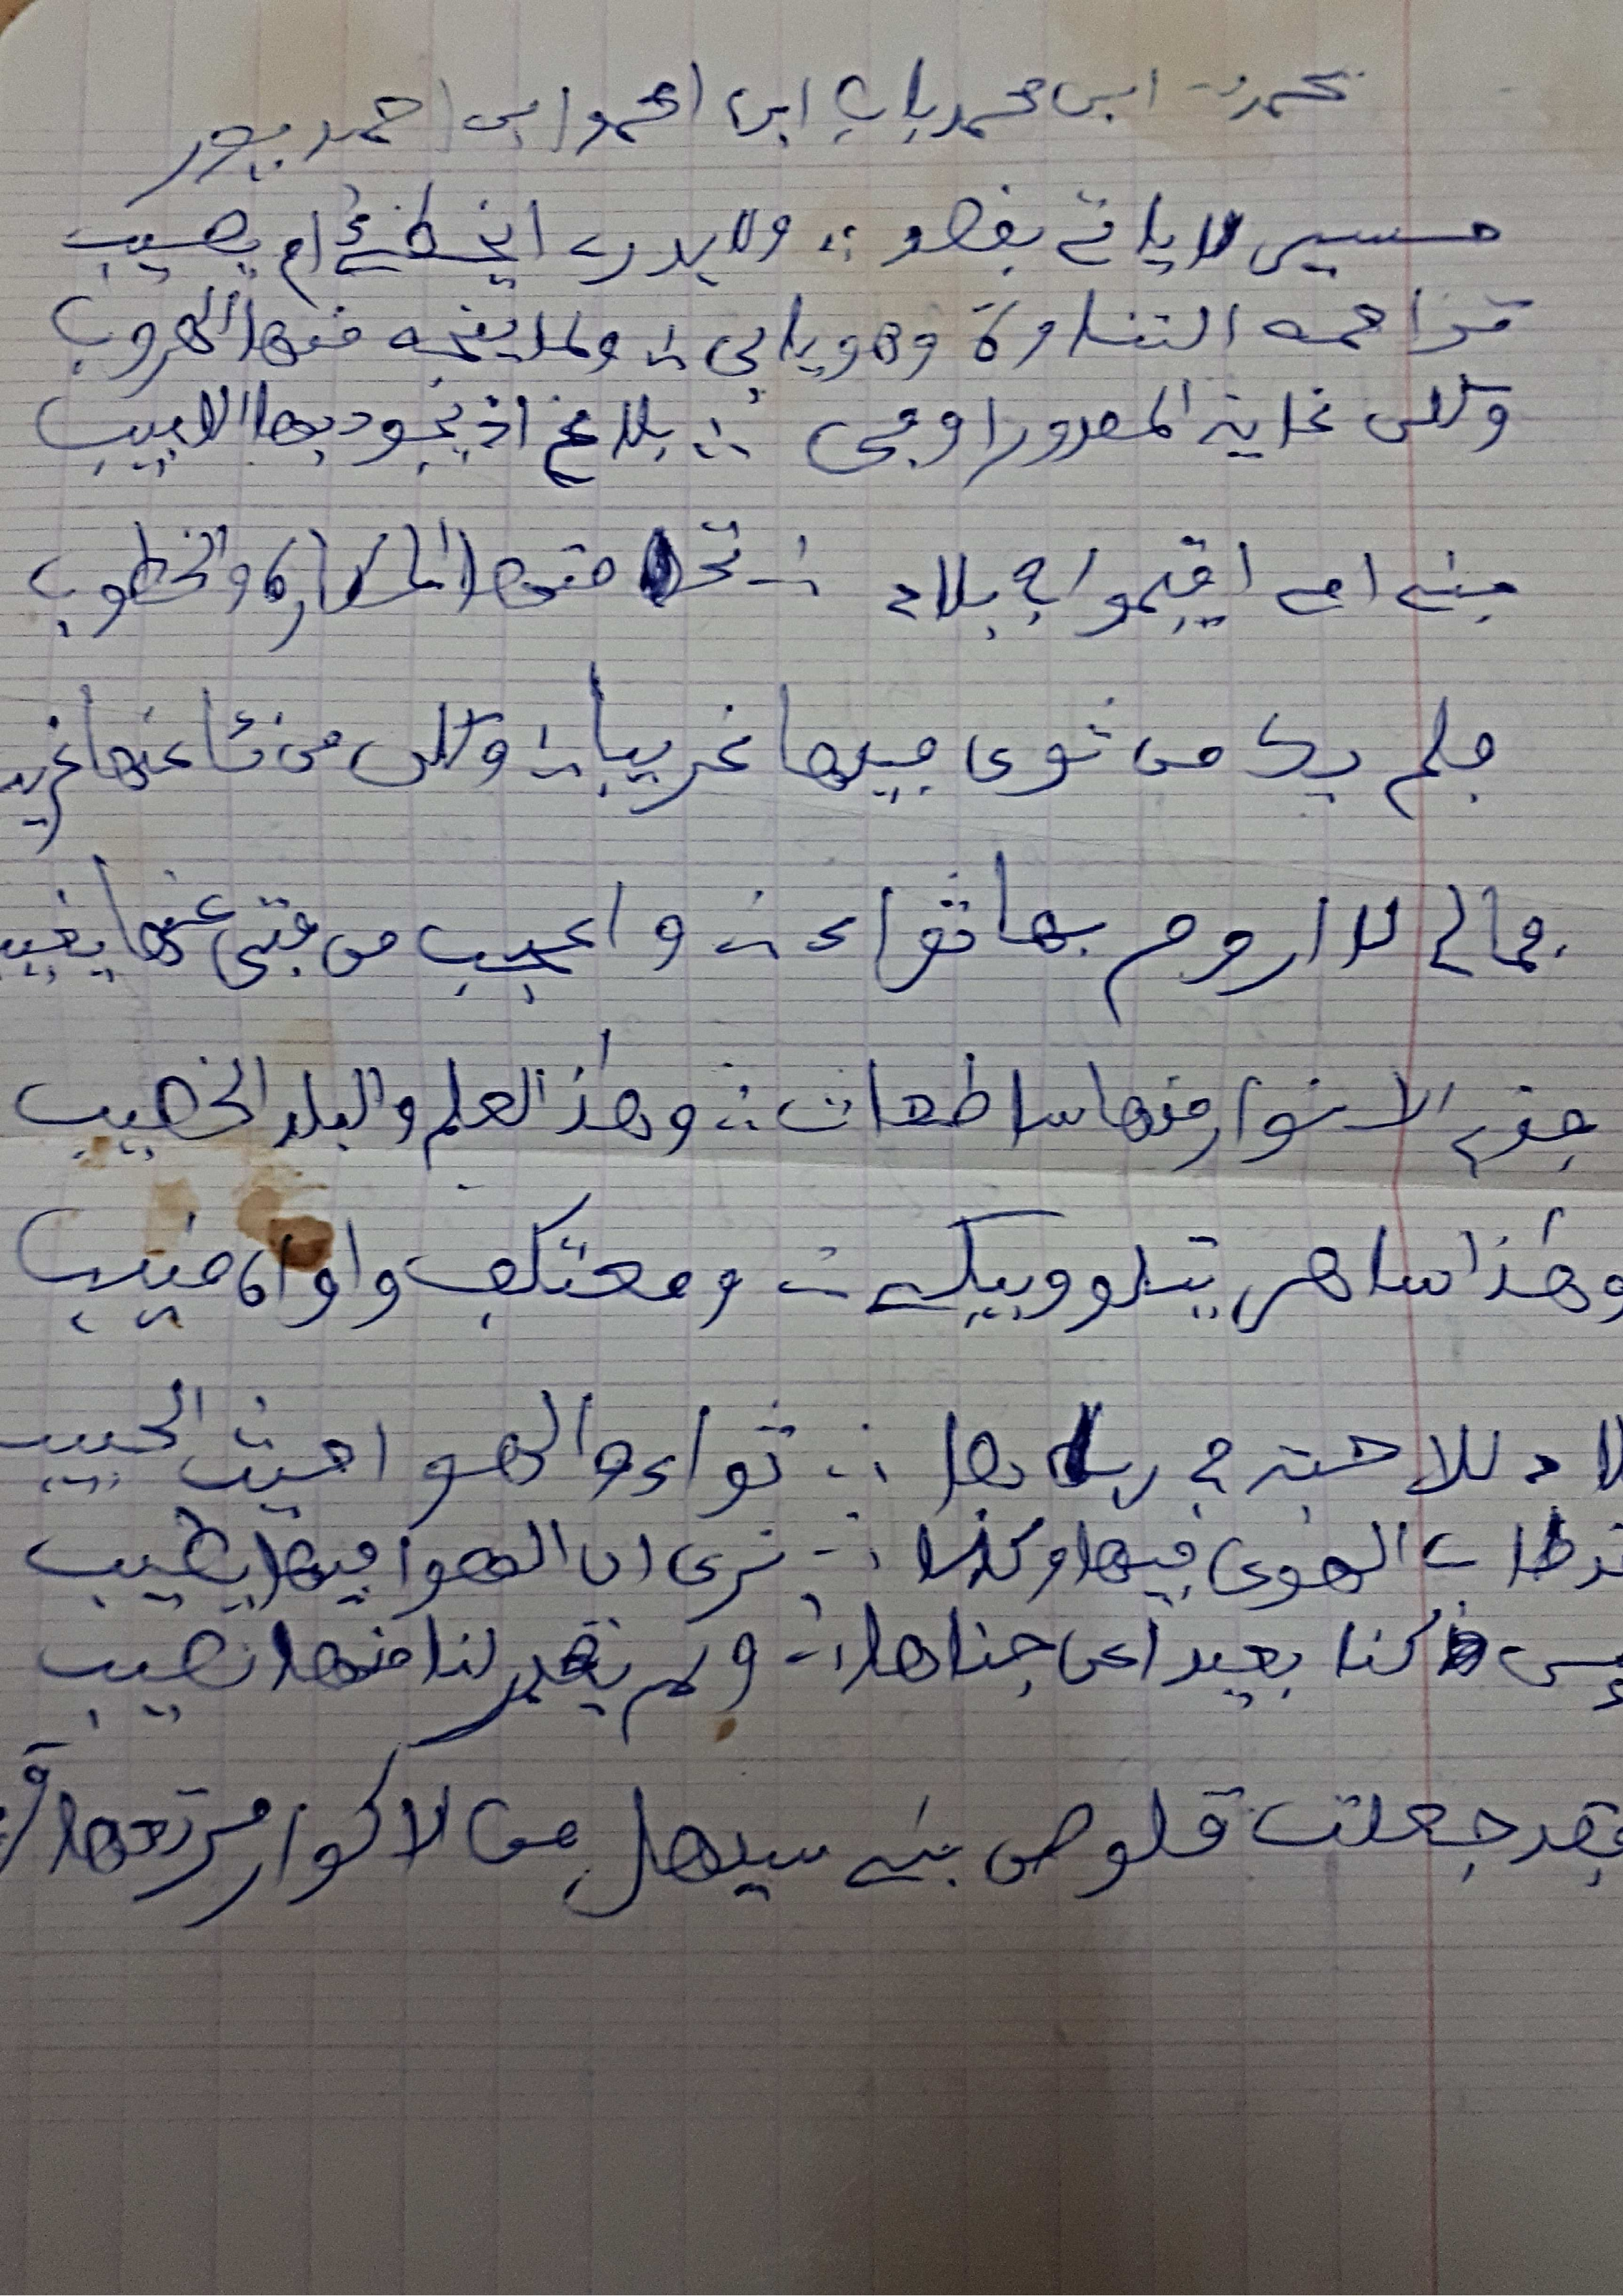 محمدن ابن محمد باب ابن احمد ابن احمد بيور
حسيس لا ياتي بفضو ∴ ولا يدري ايخطئ ام يصيب
تزاحمه التناوة وهو يابى ∴ ولما ينجه منها الهروب
ولكن غاية المصدور اوجى ∴ بلاغ اذ يجود بها الابيب
بني امي اقيموا في بلاد ∴ تحامتها المكاره والخطوب
فلم يك من ثوى فيها غريبا ∴ ولكن من نئا عنها غريب
فمالي لا اروم بها ثواء ∴ واعجب من فتى عنها يغيب
فذي الانوار منها ساطعات ∴ وهذا العلم والبلد الخصيب
وهذا ساهر يتلو ويبكي ∴ ومعتكف واواه منيب
بلاد للاحبة في رباها ∴ ثواء والهوا حيث الحبيب
طاب الهوى فيها وكنا ∴ نرى ان الهوا فيها يطيب
كنا بعيدا عن جناها ∴ ولم يقدر لنا منها نصيب
فقد جعلت قلوص بني سهيل من الاكوار مرتعها